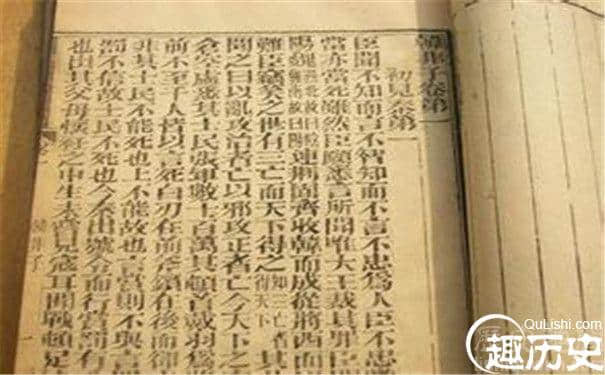 韓非子卷第一
初見秦第一
臣聞不知而言不智知而不言不忠爲人臣不忠
當亦當死雖然臣願悉言所聞唯大王裁其罪臣
陽魏燕北故曰陰魏南故曰陽連荆固齊收韓而成從將西面
難臣竊笑之世有三亡而天下得之知三亡者得天下其
聞之曰以亂攻治者亡以邪攻正者亡今天下之
倉空虛悉其士民張軍數十百萬其頓首戴羽爲
前不至千人皆以言死白刃在前斧鑕在後而卻
非其士民不能死也上不能故也言賞則不與言
罰不信故士民不死也今秦出號令而行賞罰有
也出其父母懷衽之中生未嘗見寇耳聞戰頓足
韓非子
一
QuLishi.com
趣历史